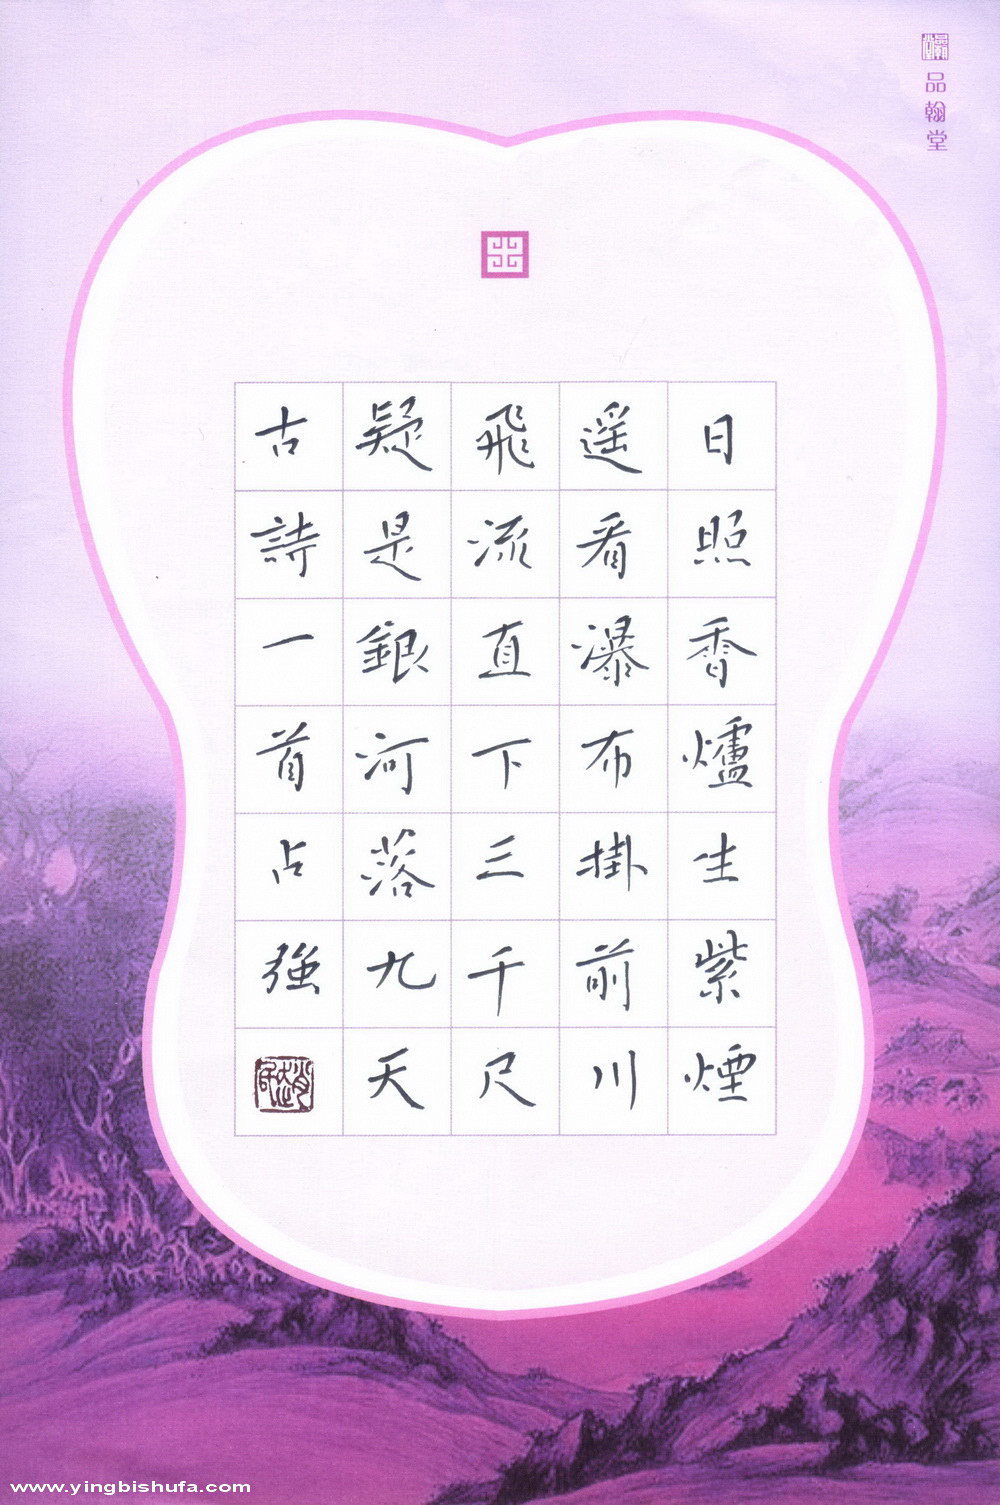 品翰堂
日照香爐生紫煙
遥看瀑布掛前川
飛流直下三千尺
疑是銀河落九天
古詩一首占強
www.yingbishufa.com